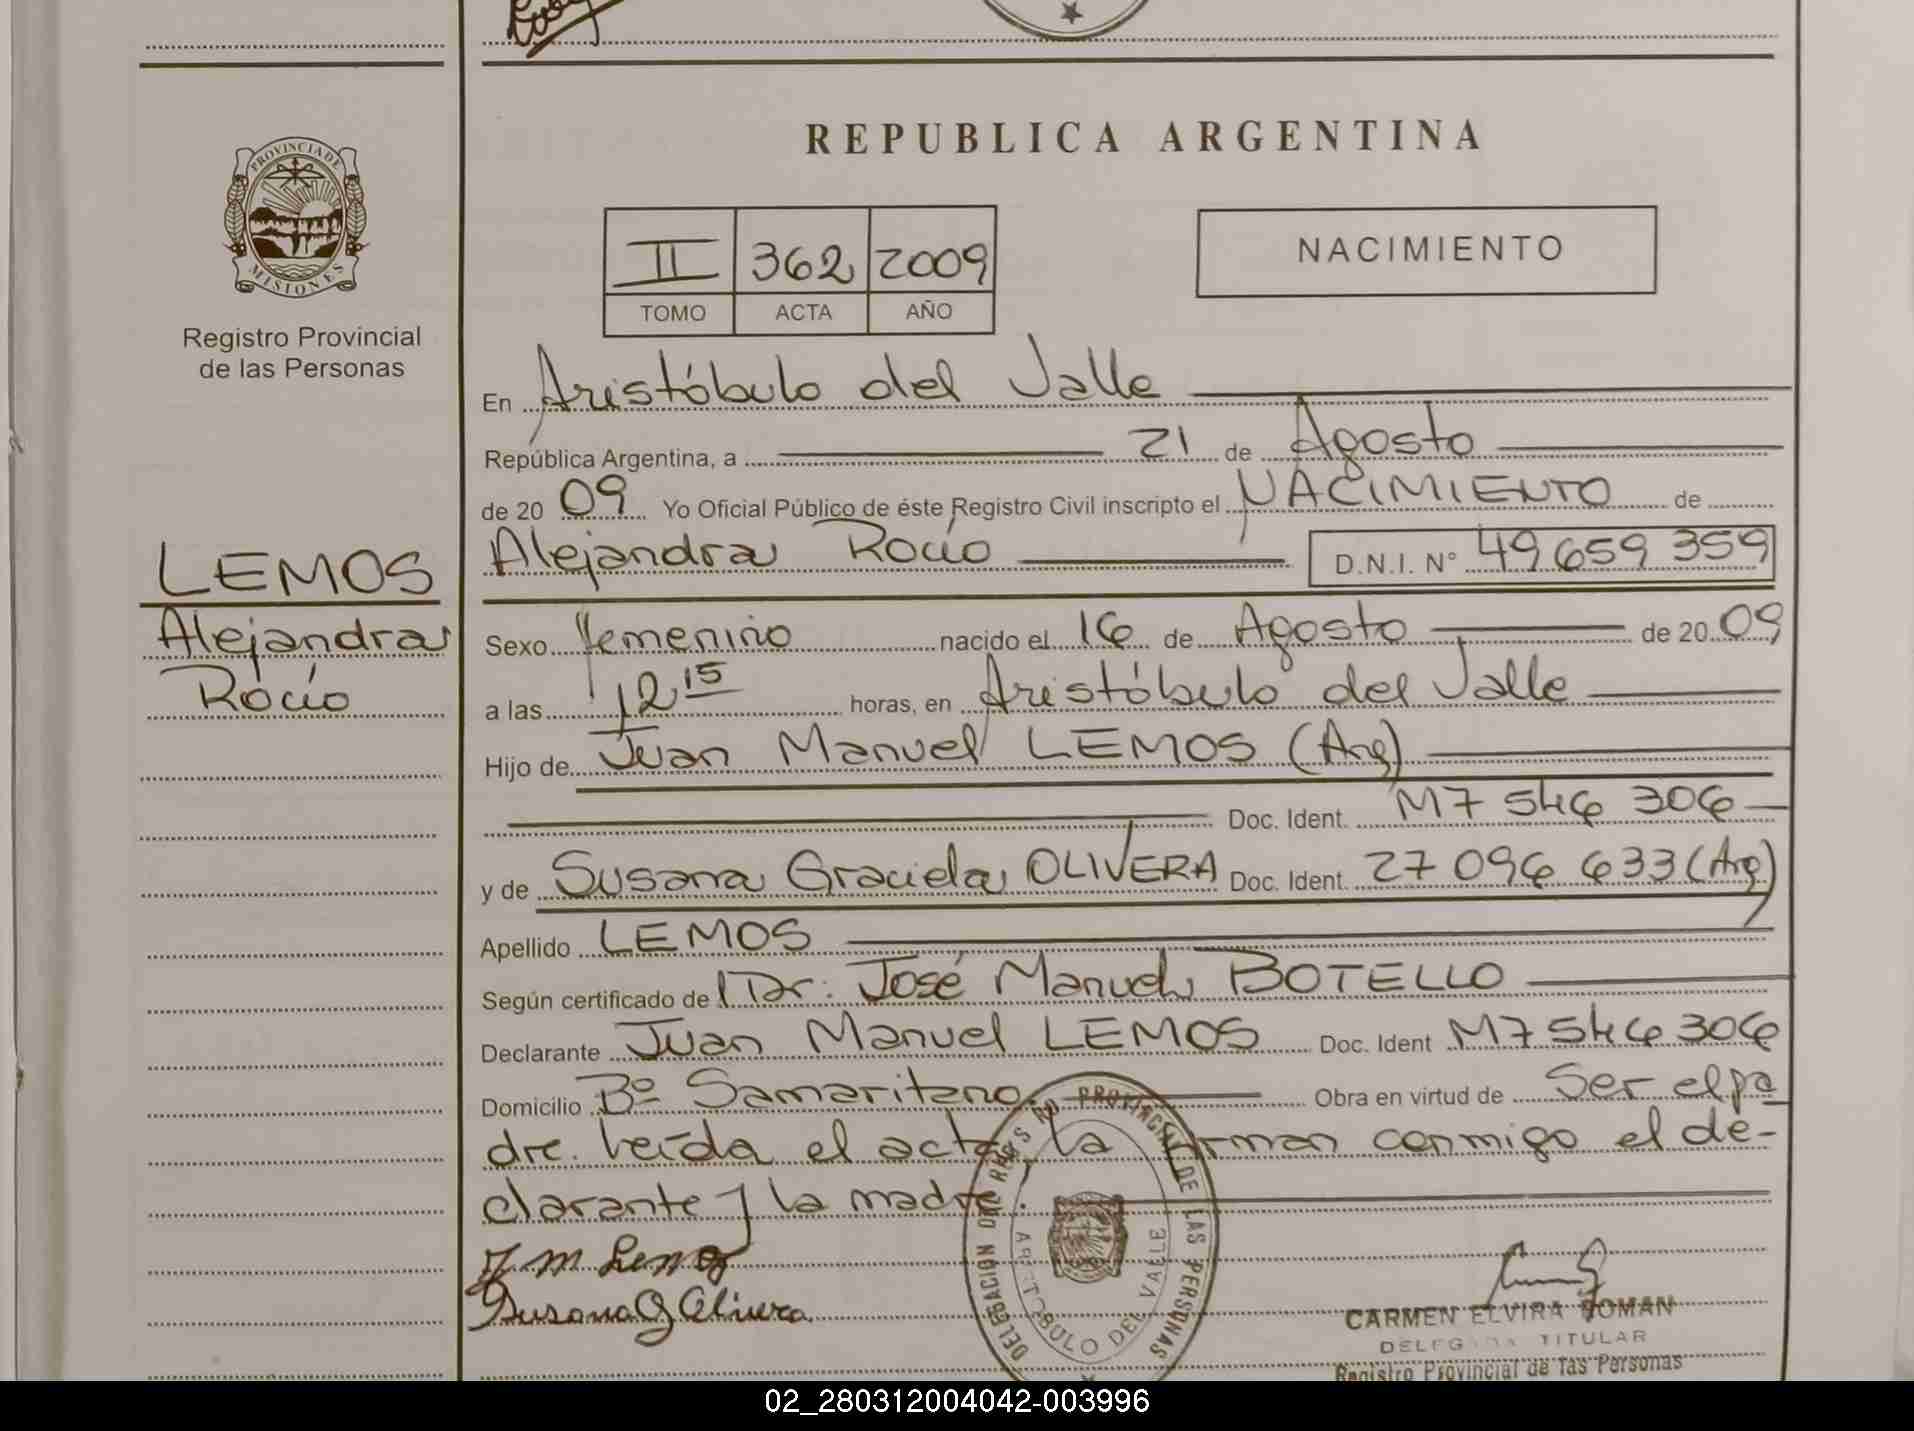 REPUBLICA ARGENTINA
PROVINCIA DE
MISIONES
Registro Provincial
de las Personas
II 362 2009
TOMO ACTA AÑO
NACIMIENTO
En Aristóbulo del Valle
República Argentina, a 21 de Agosto
de 20 09 Yo Oficial Público de éste Registro Civil inscripto el NACIMIENTO de
Alejandra Rocío D.N.I. N° 49 659 359
LEMOS
Alejandra
Rocío
Sexo femenino nacido el 16 de Agosto de 20 09
a las 12 15 horas, en Aristóbulo del Valle
Hijo de Juan Manuel LEMOS (Arg)
Doc. Ident. M7 546 306
y de Susana Graciela OLIVERA Doc. Ident. 27 096 633 (Arg)
Apellido LEMOS
Según certificado de Dr. José Manuel BOTELLO
Declarante Juan Manuel LEMOS Doc. Ident M7 546 306
Domicilio Bº Samaritano. Obra en virtud de Ser el pa
dre. Leída el acta, la firman conmigo el de-
clarante y la madre.
J M Lemos
Susana G Olivera
DELEGACION DEL REGISTRO PROVINCIAL DE LAS PERSONAS
ARISTOBULO DEL VALLE
CARMEN ELVIRA ROMAN
DELEGADA TITULAR
Registro Provincial de las Personas
02_280312004042-003996